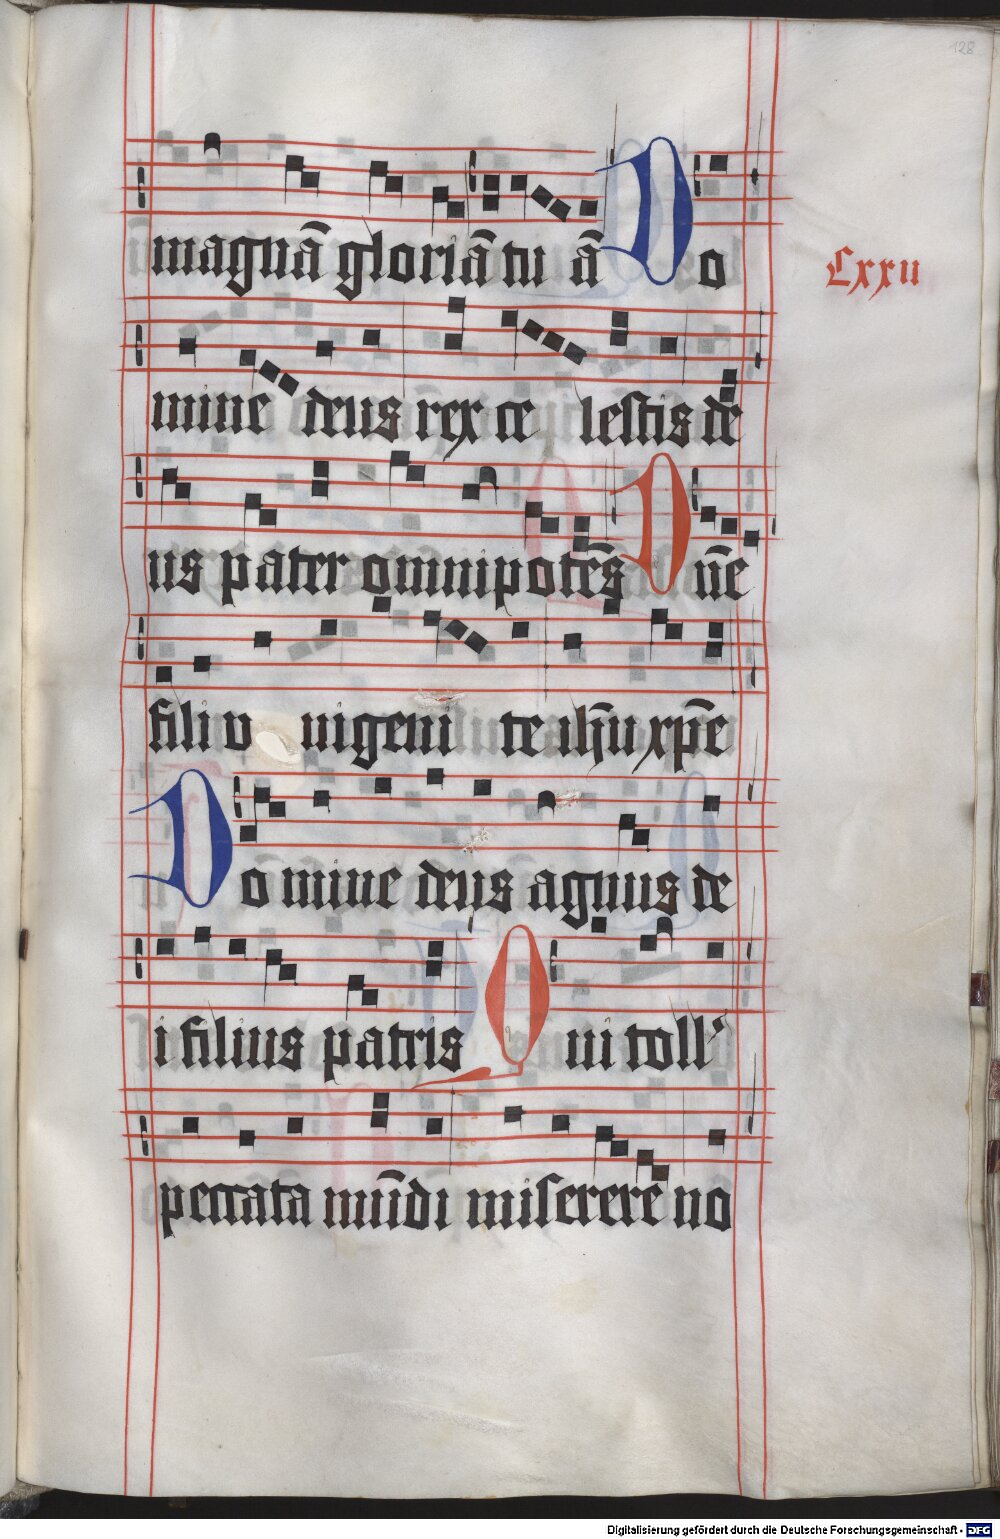 128
magnā gloriā tu ā Do
Cxxii
mine deus rex ce lestis de
us pater omnipotēs Dn̄e
fili v nigeni te ih̄u xp̄e
Domine deus agnus de
i filius patris Qui toll
peccata mūdi miserere no
Digitalisierung gefördert durch die Deutsche Forschungsgemeinschaft - DFG